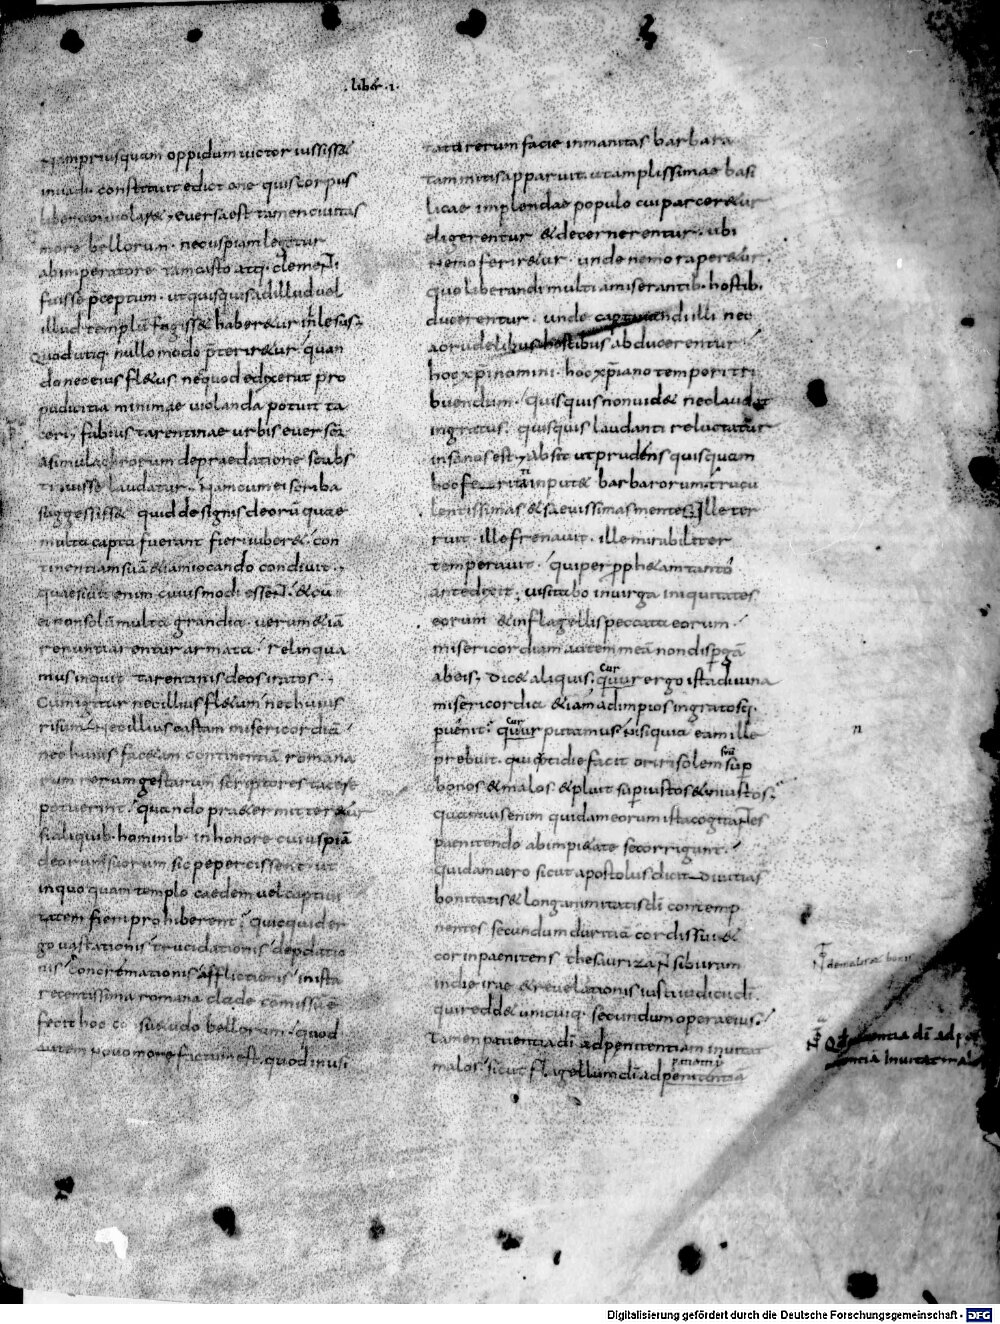 . liber . 1 .
Nam priusquam oppidum uictor iussisset
inuadi . constituit edicto ne quis corpus
liberum uiolaret ; euersa est tamen ciuitas
more bellorum . nec uspiam legitur
ab imperatore tam casto atq; clementi
fuisse p̄ceptum . ut quisquis ad illud uel
illud templū fugisset haberetur inlesus ;
Quod utiq; nullo modo p̄teriretur . quan
do nec eius fletus . nec quod edixerat pro
pudicitia minimae uiolanda potuit ta
ceri ; fabius tarentinae urbis euersor
a simulachrorum depraedatione se abs
tinuisse laudatur . Nam cum ei scriba
suggessisset quid de signis deorū quae
multa capta fuerant fieri iuberet . con
tinentiam suā etiam iocando condiuit ;
quaesiuit enim cuiusmodi essent . et cū
ei non solū multa grandia . uerum etiā
renuntiarentur armata . relinqua
mus inquit tarentinis deos iratos .
Cum igitur nec illius fletum nec huius
risum . Nec illius castam misericordiā
nec huius facetam continentiā romana
rum rerum gestarum scriptores tacere
potuerint . quando praetermitteretur
si aliquib; hominib; in honore cuiuspiā
deorum suorum sic pepercissent . ut
in quoquam templo caedem uel captiui
tatem fieri prohiberent ; quicquid er
go uastationis trucidationis depdatio
nis concremationis afflictionis in ista
recentissima romana clade comissū ē
fecit hoc consuetudo bellorum . quod
autem nouo more factum est . quod inusi
tata rerum facie inmanitas barbara
tam mitis apparuit . ut amplissimae basi
licae implendae populo cui parceretur
eligerentur et decernerentur . ubi
Nemo feriretur . unde nemo raperetur .
quo liberandi multi a miserantib; hostib;
ducerentur . unde captiuandi illi nec
a crudelibus hostibus abducerentur .
hoc xp̄i nomini . hoc xp̄iano tempori tri
buendum . quisquis non uidet nec laudat
ingratus ; quisquis laudanti reluctatur
insanus est ; absit ut prudens quisquam
hoc feritati inputet barbarorum . trucu
lentissimas et saeuissimas mentes . Ille ter
ruit . ille frenauit . ille mirabiliter
temperauit . qui per pphetam tanto
ante dixit . uisitabo in uirga iniquitates
eorum et in flagellis peccata eorum .
misericordiam autem meā non dispgā
ab eis ; Dicet aliquis . cur
quur ergo ista diuina
misericordia etiam ad impios ingratosq;
puenit . cur
quur putamus nisi quia eam ille
prebuit . qui cotidie facit oriri solem suū sup
bonos et malos et pluit sup iustos et iniustos ;
quamuis enim quidam eorum ista cogitantes
paenitendo ab impietate se corrigant .
quidam uero sicut apostolus dicit diuitias
bonitatis et longanimitatis dī contemp
nentes secundum duritiā cordis sui et
cor inpaenitens thesaurizant sibi iram
in die irae et reuelationis iusti iudicii dī .
qui reddet unicuiq; secundum opera eius .
Tamen patientia dī ad penitentiam inuitat
malos . sicut flagellum dī ad penitentiā
n
Qd patientia dī ad pe
nitentiā inuitat malos
Digitalisierung gefördert durch die Deutsche Forschungsgemeinschaft - DFG